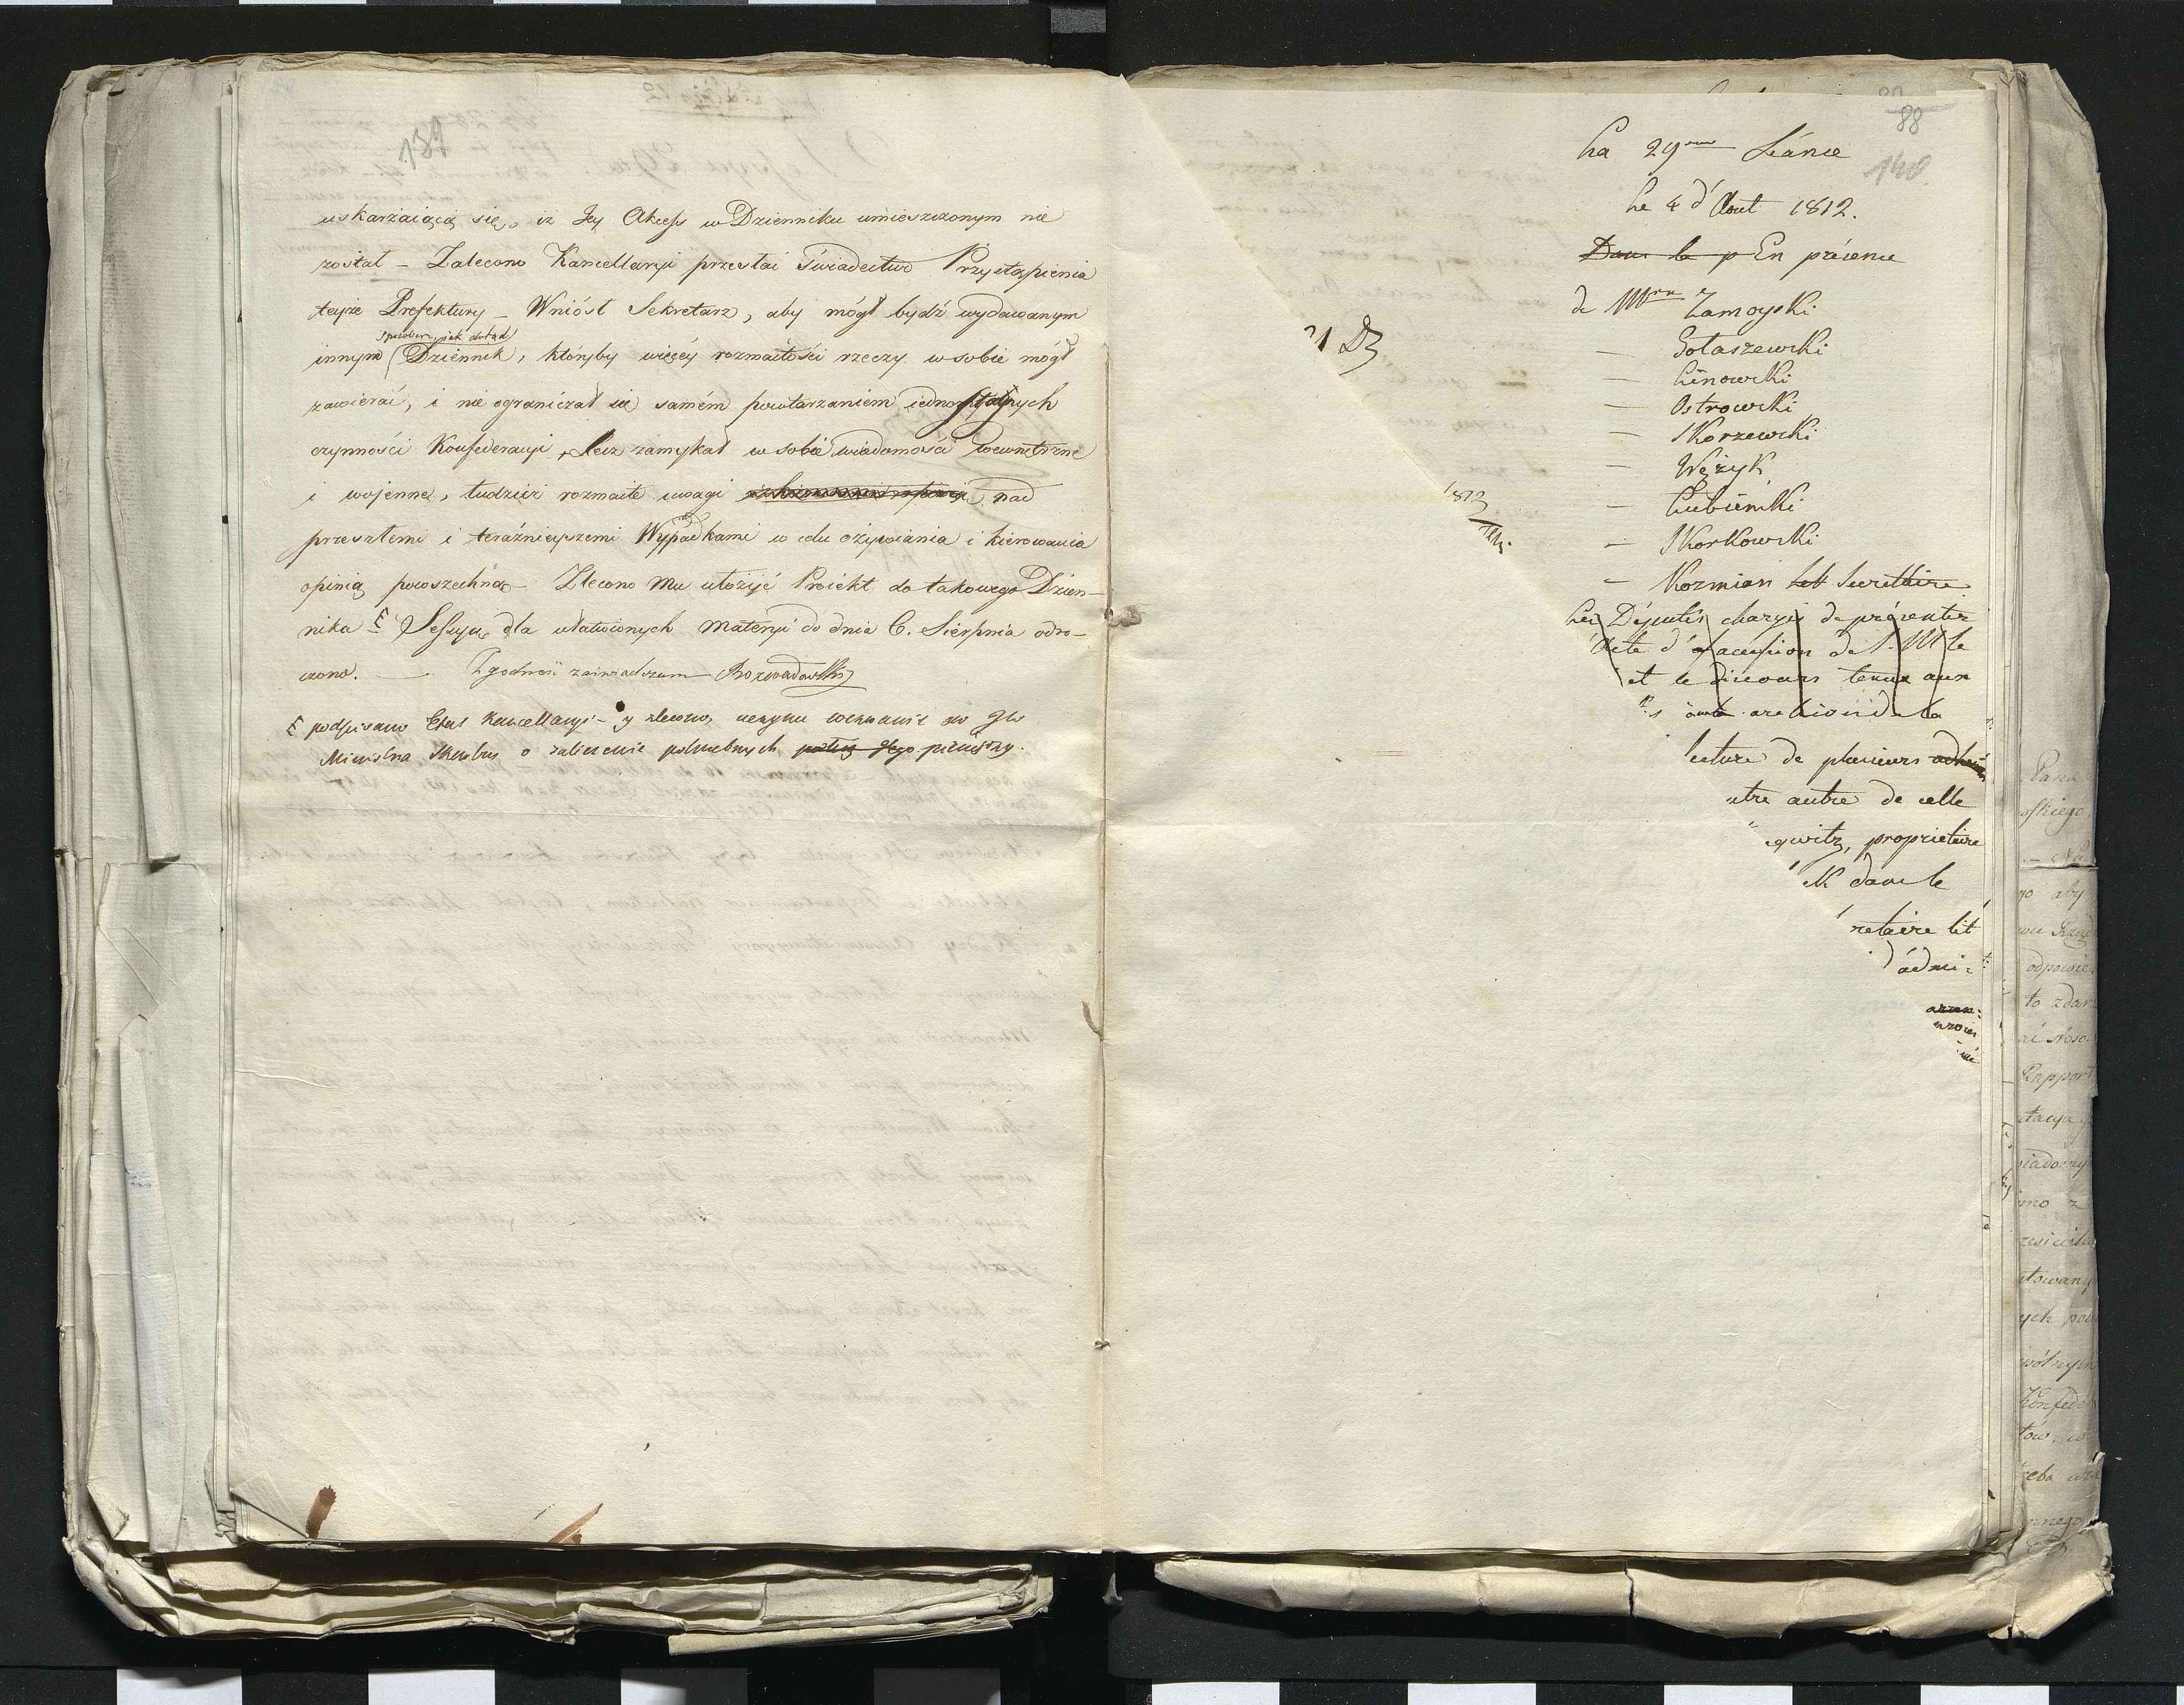 139
uskarżaiącą się, iż Jey Akcess w Dzienniku umieszczonym nie
został – Zalecono Kancellaryi przesłać Świadectwo Przystąpienia
teyże Prefektury – Wniósł Sekretarz, aby mógł bydź wydawanym
sposobem, jak dotąd
innym Dziennik, któryby więcéy rozmaitości rzeczy w sobie mógł
zawierać, i nie ograniczał się samém powtarzaniem iednostaynych
czynności Konfederacyi, Lecz zamykał w sobie wiadomości wewnętrzne
i wojenne, tudzież rozmaite uwagi nad
przeszłemi i teraźnieyszemi Wypadkami w celu ożywiania i kierowania
opinią powszechną – Zlecono Mu ułożyć Proiekt do takowego Dzien-
nika Sessya, dla ułatwionych Materyi do dnia 6. Sierpnia odro-
czona. — Zgodność zaświadczam Rozwadowski
podpisano Etat Kancellaryi – y zlecono, uczynić wezwanie do
Ministra Skarbu o zaliczenie potrzebnych pieniędzy.
88
140
La 29me Séance
Le 4 d'Aout 1812.
Dans la p En présence
de Mrs Zamoyski
— Gołaszewski
— Linowski
— Ostrowski
— Skorzewski
— Wężyk
— Łubieński
— Skorkowski
— Kozmian Secrettaire
Les Députés chargés de présenter
Acte d'accession de S. M. le
et le discours tenus aux
de la
lecture de plusieurs
utre autre de celle
gwitz, proprietaire
dans le
retaire lit
d'admi-
1812